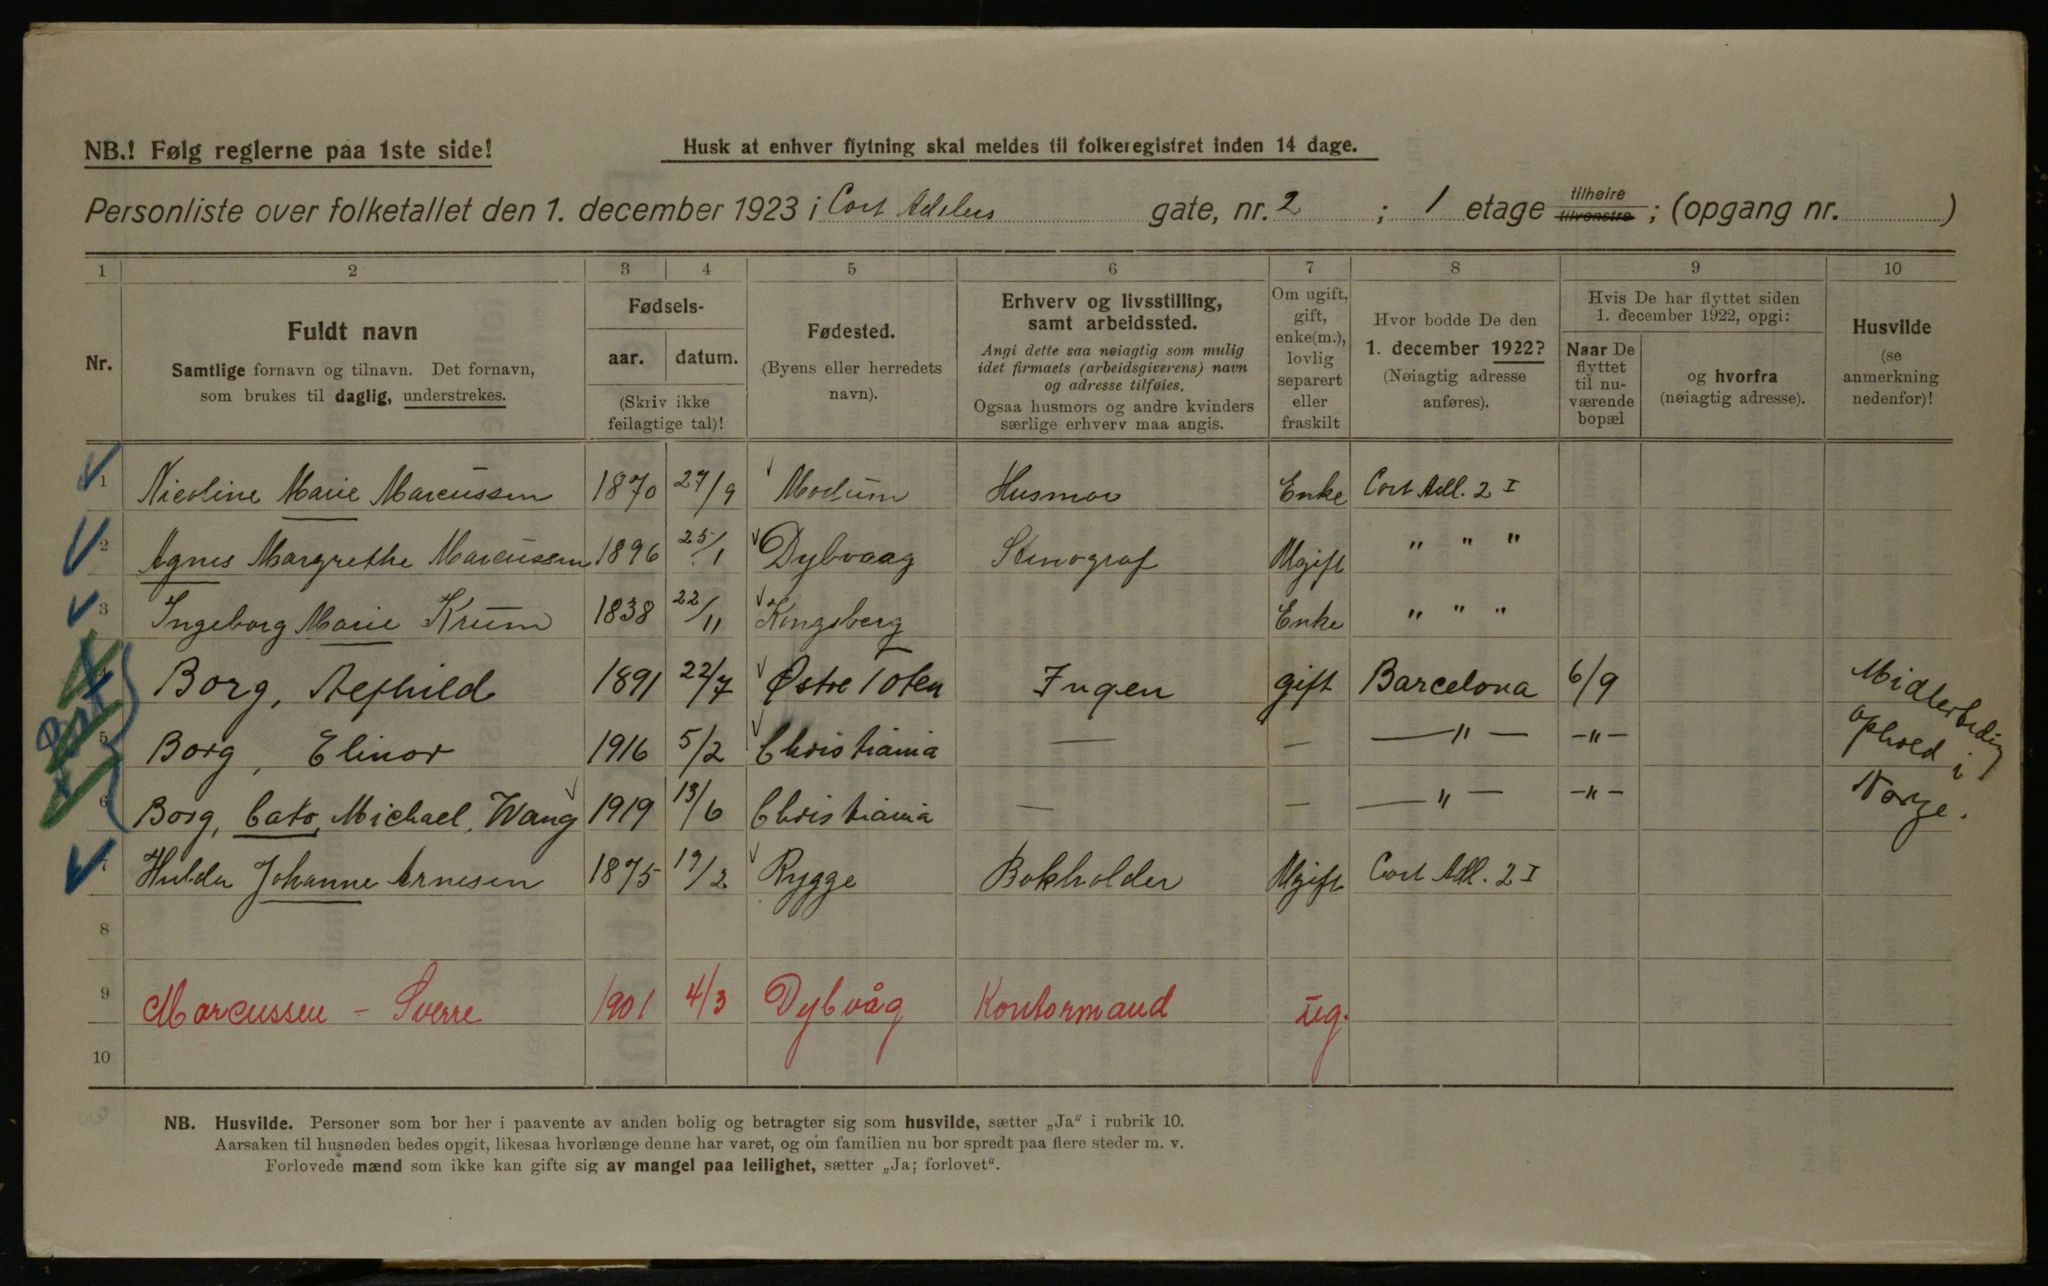 NB.! Følg reglerne paa 1ste side!
Husk at enhver flytning skal meldes til folkeregistret inden 14 dage.
Personliste over folketallet den 1. december 1923 i Cort Adelers gate, nr. 2 ; 1 etage tilhøire tilvenstre ; (opgang nr. )
1 2 3 4 5 6 7 8 9 10
Nr.
Fuldt navn
Samtlige fornavn og tilnavn. Det fornavn,
som brukes til daglig, understrekes.
Fødsels-
aar. datum.
(Skriv ikke
feilagtige tal)!
Fødested.
(Byens eller herredets
navn).
Erhverv og livsstilling,
samt arbeidssted.
Angi dette saa nøiagtig som mulig
idet firmaets (arbeidsgiverens) navn
og adresse tilføies.
Ogsaa husmors og andre kvinders
særlige erhverv maa angis.
Om ugift,
gift,
enke(m.),
lovlig
separert
eller
fraskilt
Hvor bodde De den
1. december 1922?
(Nøiagtig adresse
anføres).
Hvis De har flyttet siden
1. december 1922, opgi:
Naar De
flyttet
til nu-
værende
bopæl
og hvorfra
(nøiagtig adresse).
Husvilde
(se
anmerkning
nedenfor)!
1 Nicoline Marie Marcussen 1870 27/9 Modum Husmor Enke Cort Adl. 2 I
2 Agnes Margrethe Marcussen 1896 25/1 Dybvaag Stenograf Ugift " " "
3 Ingeborg Marie Krum 1838 22/11 Kongsberg Enke " " "
4 Borg, Aefhild 1891 22/7 Østre Toten Ingen gift Barcelona 6/9 Midlertidig
5 Borg, Elinor 1916 5/2 Christiania — — — " — -"- ophold i
6 Borg, Cato, Michael, Wang 1919 13/6 Christiania — — — " — -"- Norge.
7 Hulda Johanne Arnesen 1875 19/2 Rygge Bokholder Ugift Cort Adl. 2 I
8
9 Marcussen - Sverre 1901 4/3 Dybvåg Kontormand ug.
10
NB. Husvilde. Personer som bor her i paavente av anden bolig og betragter sig som husvilde, sætter „Ja“ i rubrik 10.
Aarsaken til husnøden bedes opgit, likesaa hvorlænge denne har varet, og om familien nu bor spredt paa flere steder m. v.
Forlovede mænd som ikke kan gifte sig av mangel paa leilighet, sætter „Ja; forlovet“.